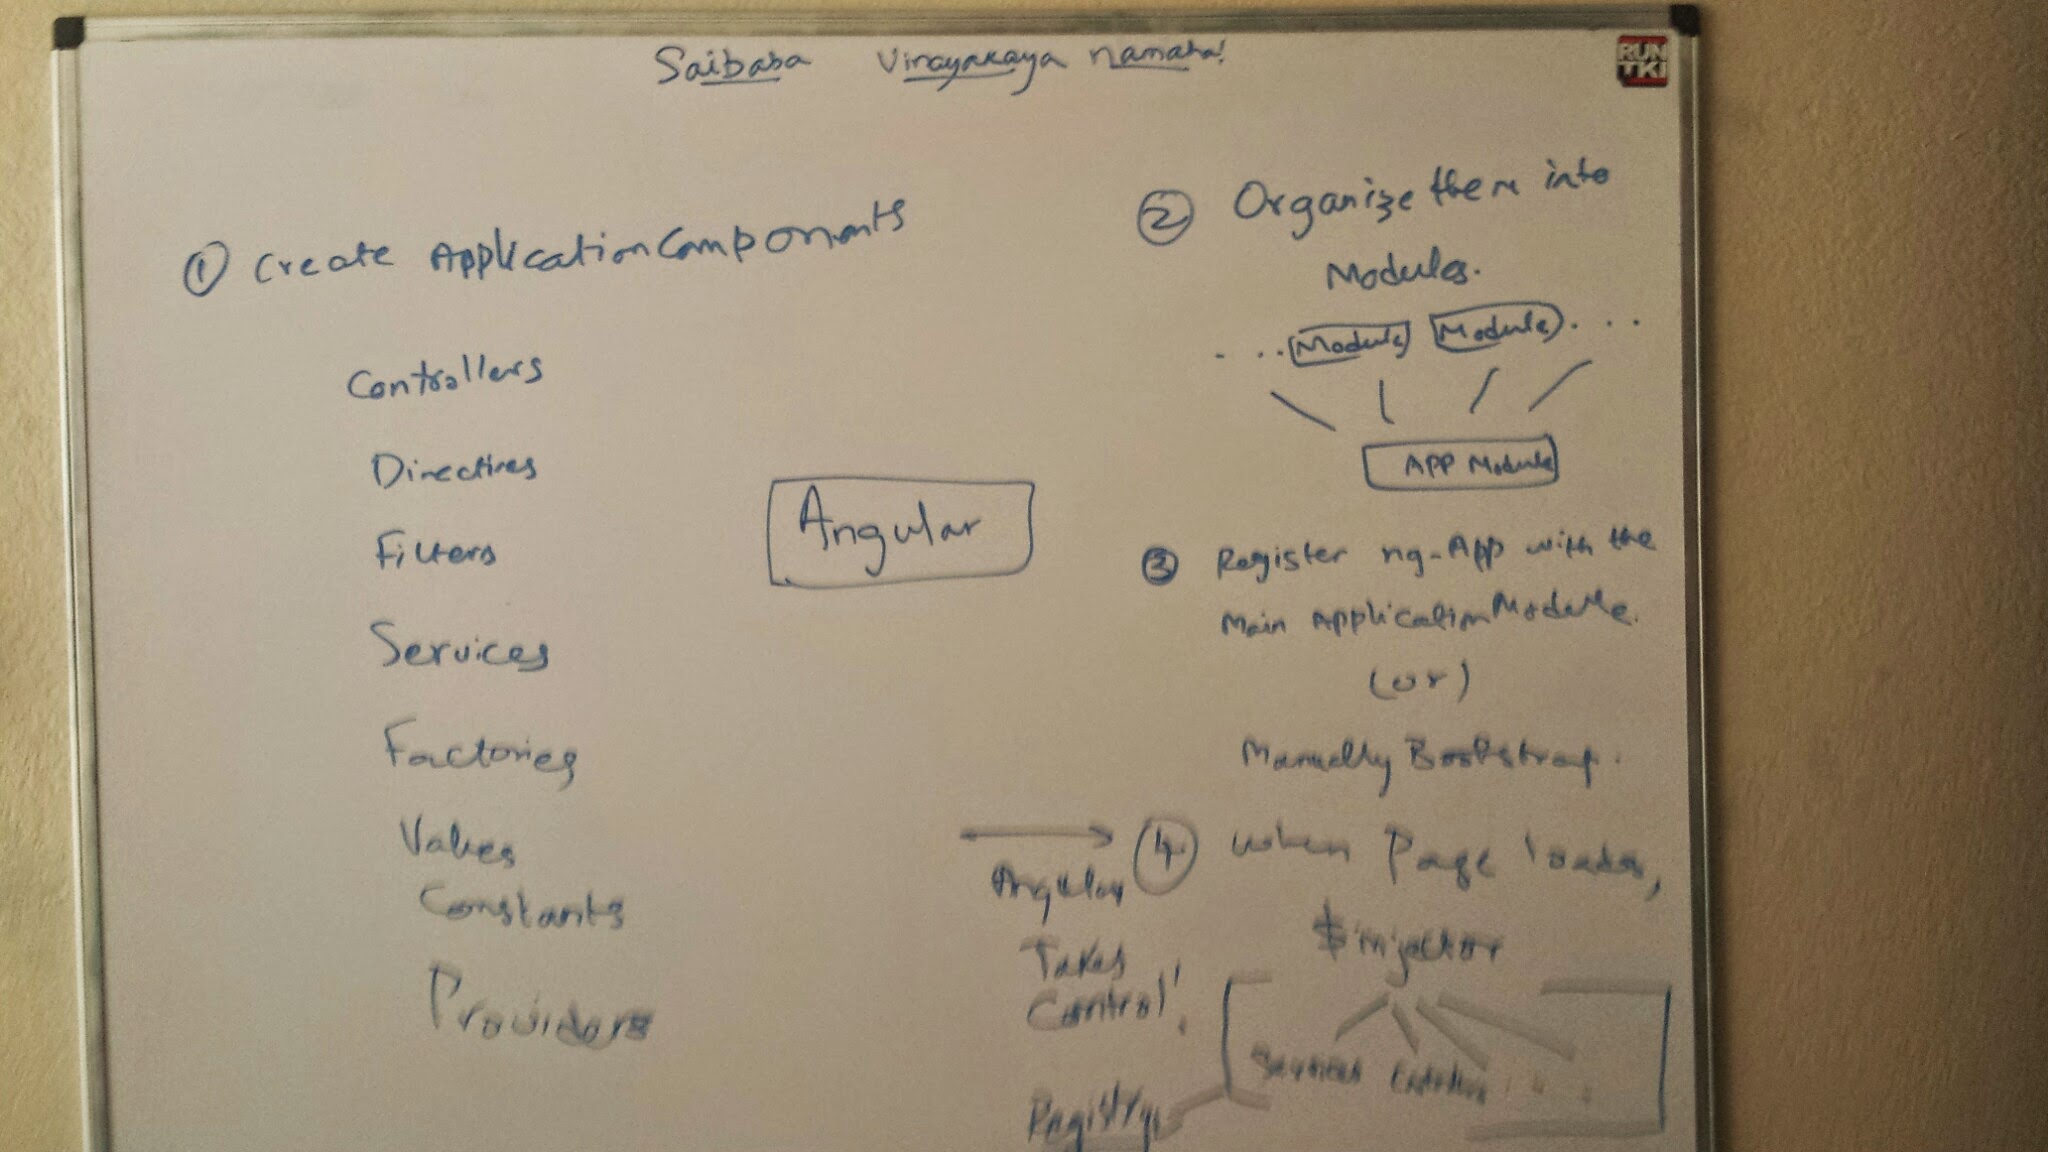 Saibaba Vinayakaya namaha!
RUN
TKI
① Create Application Components
Controllers
Directives
Filters
Services
Factories
Values
Constants
Providers
Angular
② Organize them into
Modules.
. . . Module Module . . .
APP Module
③ Register ng-App with the
Main Application Module.
(or)
Manually Bootstrap.
④ when Page loads,
$injector
Services
Angular
Takes
Control!
Registry